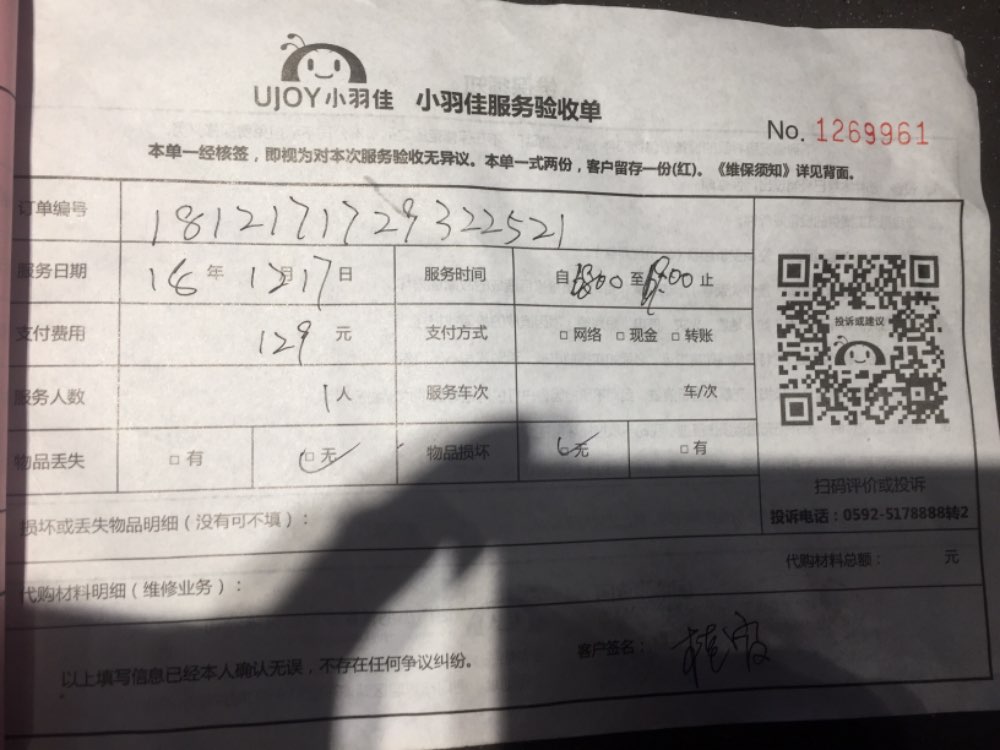 UJOY小羽佳 小羽佳服务验收单
No. 1269961
本单一经核签，即视为对本次服务验收无异议。本单一式两份，客户留存一份(红)。《维保须知》详见背面。
订单编号 1812171729322521
服务日期 18 年 12月17日 服务时间 自 至 止
投诉或建议
支付费用 129 元 支付方式 □ 网络 □ 现金 □ 转账
服务人数 1人 服务车次 车/次
物品丢失 □ 有 □ 无 物品损坏 无 □ 有
扫码评价或投诉
投诉电话：0592-5178888转2
损坏或丢失物品明细（没有可不填）：
代购材料总额： 元
代购材料明细（维修业务）：
客户签名：
以上填写信息已经本人确认无误，不存在任何争议纠纷。